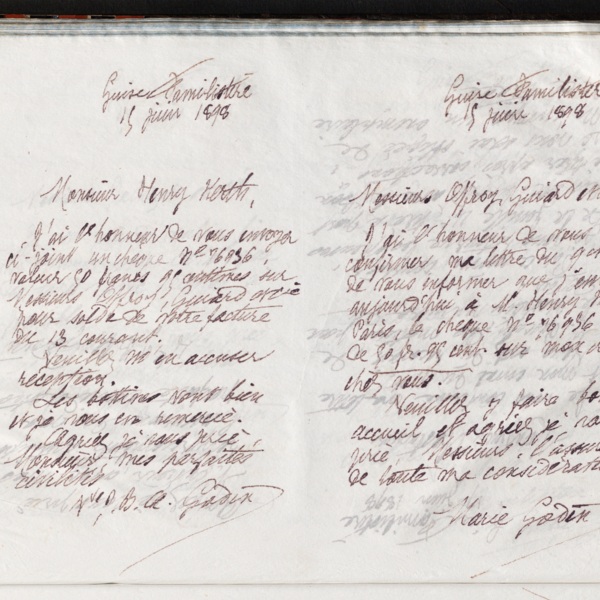 Guise Familistère
15 juin 1898
Monsieur Henry
J'ai l'honneur de vous envoyer
ci-joint un chèque N° 76936,
valeur 50 francs 95 centimes sur
Messieurs Offroy, Guiard et Cie
pour solde de votre facture
du 13 courant.
Veuillez m'en accuser
réception.
Les bottines vont bien
et je vous en remercie.
Agréez, je vous prie,
Monsieur, mes parfaites
civilités
Godin
Guise Familistère
15 juin 1898
Messieurs Offroy, Guiard et
J'ai l'honneur de vous
confirmer ma lettre du
de vous informer que j'en
aujourd'hui à M. Henry
Paris, le chèque N° 76936
de 50 fr. 95 cent. sur mon
chez vous.
Veuillez y faire bo
accueil et agréez, je vo
prie, Messieurs, l'assu
de toute ma considérat
Marie Godin